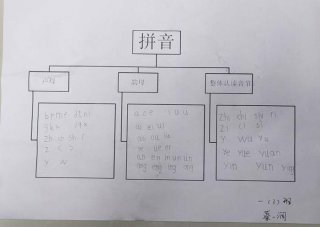 拼音
声母
韵母
整体认读音节
bpmf dtnl
gkh jqx
zh ch sh r
z c s
y w
a o e i u ü
ai ei ui
ao ou iu
ie üe er
an en in un ün
ang eng ing ong
zhi chi shi ri
zi ci si
yi wu yu
ye yue yuan
yin yun ying